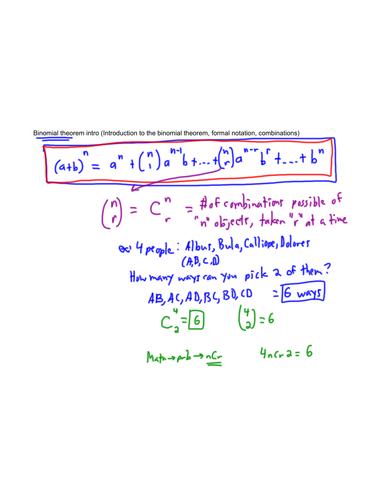 Binomial theorem intro (Introduction to the binomial theorem, formal notation, combinations)
(a+b)^n = a^n + (n 1) a^(n-1) b + ... + (n r) a^(n-r) b^r + ... + b^n
(n r) = C^n_r = # of combinations possible of
"n" objects, taken "r" at a time
ex) 4 people: Albus, Bula, Calliope, Dolores
(A, B, C, D)
How many ways can you pick 2 of them?
AB, AC, AD, BC, BD, CD = 6 ways
C^4_2 = 6 (4 2) = 6
Math → prb → nCr 4nCr2 = 6